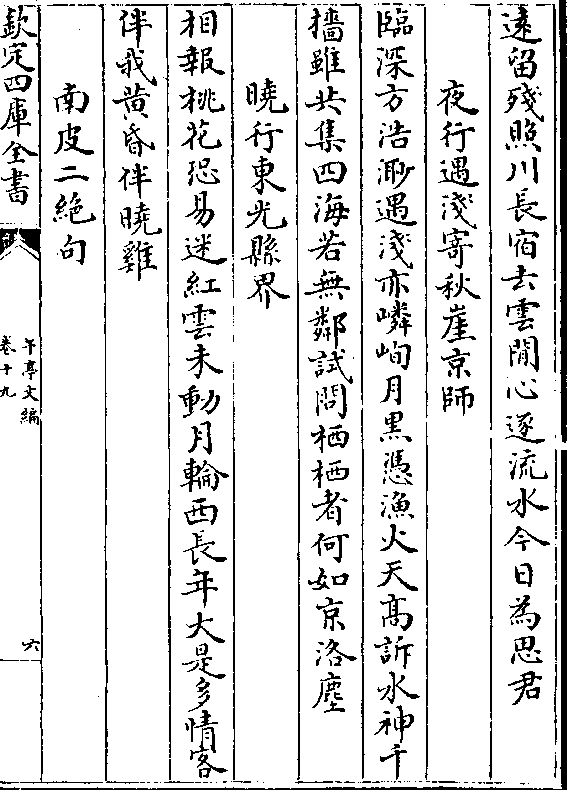 遠留殘照川長宿去雲閒心逐流水今日為思君
夜行遇淺寄秋崖京師
臨深方浩渺遇淺亦嶙峋月黒憑漁火天髙訴水神千
檣雖共集四海若無鄰試問栖栖者何如京洛塵
曉行東光縣界
相報桃花恐易迷紅雲未動月輪西長年大是多情客
伴我黄昏伴曉雞
南皮二絶句
欽定四庫全書
午亭文編
卷十九
六